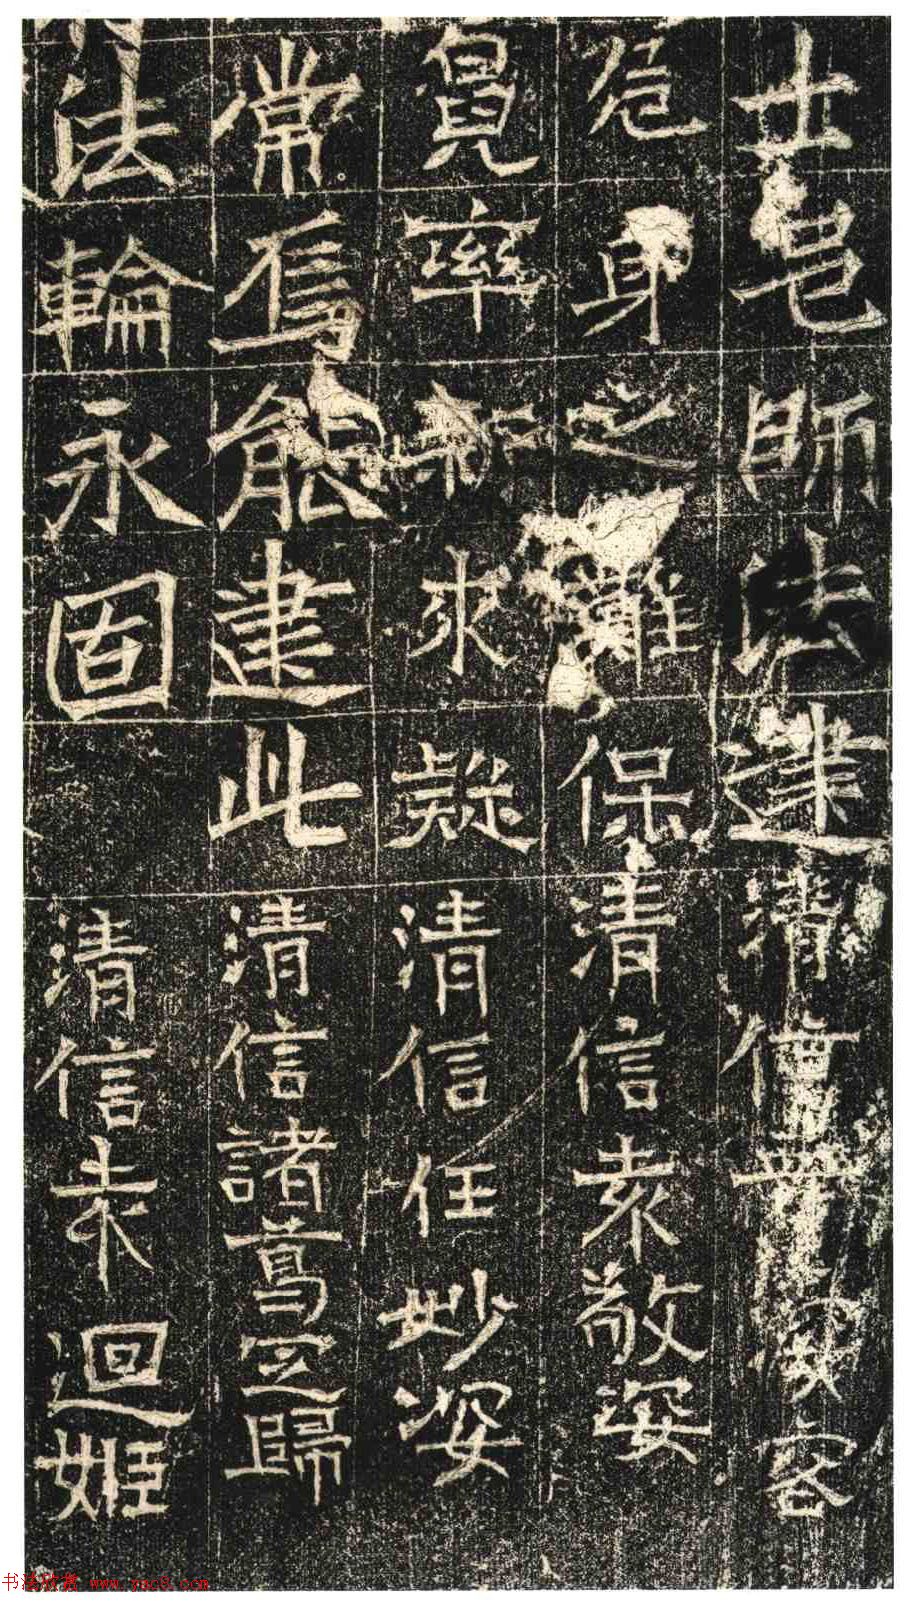 士邑師法建清信
危身之難保清信袁敬姿
率知來疑清信任妙姿
常為能建此清信諸葛歸
法輪永固清信袁迴姬
书法欣赏 www.yac8.com